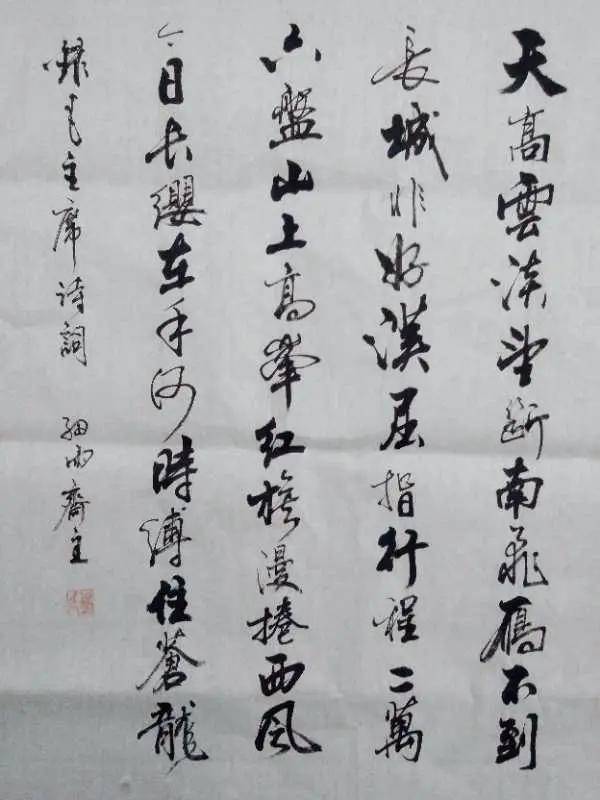 天高雲淡望斷南飛雁不到
長城非好漢屈指行程二萬
六盤山上高峯紅旗漫捲西風
今日長纓在手何時縛住蒼龍
錄毛主席诗詞 細雨齋主